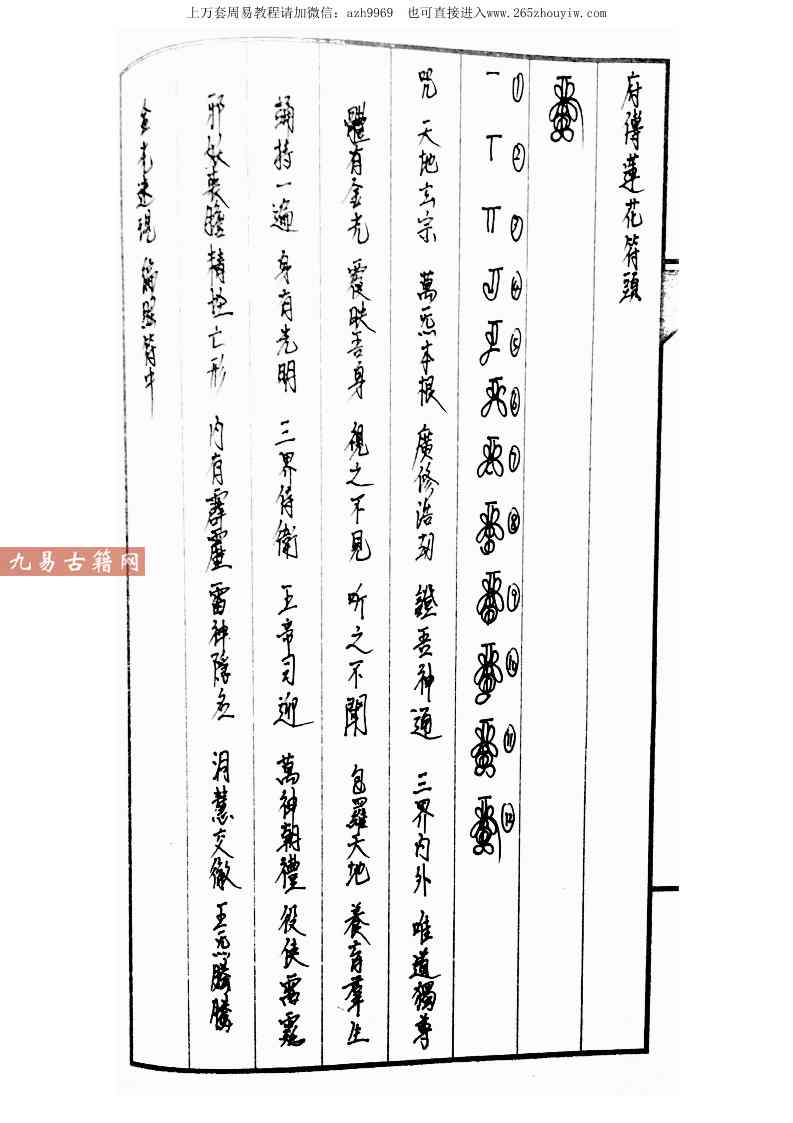 上万套周易教程请加微信：azh9969　也可直接进入www.265zhouyiw.com
府傳蓮花符頭
① ② ③ ④ ⑤ ⑥ ⑦ ⑧ ⑨ ⑩ ⑪ ⑫
咒　天地玄宗　萬炁本根　廣修浩劫　證吾神通　三界内外　唯道獨尊
體有金光　覆映吾身　視之不見　听之不聞　包羅天地　養育羣生
誦持一遍　身有光明　三界侍衛　五帝司迎　萬神朝禮　役使雷霆
邪妖喪膽　精怪亡形　内有霹靂　雷神隱名　洞慧交徹　五炁騰騰
金光速現　符中
九易古籍网